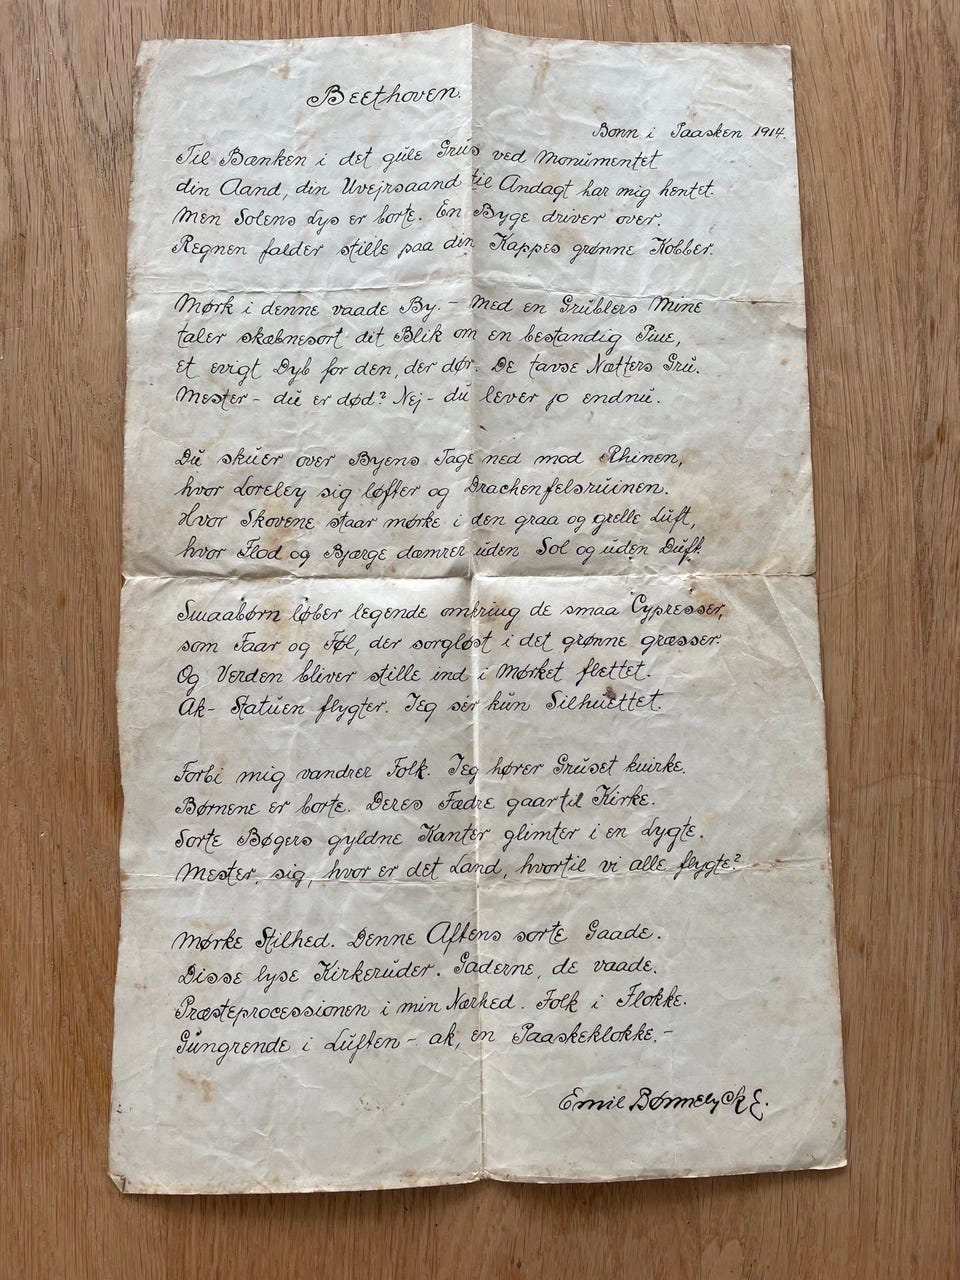 Beethoven.
Bonn i Paasken 1914.
Til Bænken i det gule Grus ved Monumentet
din Aand, din Uvejrsaand til Andagt har mig hentet.
Men Solens Lys er borte. En Byge driver over.
Regnen falder stille paa din Kappes grønne Kobber.
Mørk i denne vaade By. - Med en Grublers Mine
taler skæbnesort dit Blik om en bestandig Pine,
et evigt Dyb for den, der dør. De tavse Nætters Gru.
Mester - du er død? Nej - du lever jo endnu.
Du skuer over Byens Tage ned mod Rhinen,
hvor Loreley sig løfter og Drachenfelsruinen.
Hvor Skovene staar mørke i den graa og grelle Luft,
hvor Flod og Bjærge dæmrer uden Sol og uden Duft.
Smaabørn løber legende omkring de smaa Cypresser,
som Faar og Føl, der sorgløst i det grønne græsser.
Og Verden bliver stille ind i Mørket flettet.
Ak- Statuen flygter. Jeg sér kun Silhuettet.
Forbi mig vandrer Folk. Jeg hører Gruset kvirke.
Børnene er borte. Deres Fædre gaar til Kirke.
Sorte Bøgers gyldne Kanter glimter i en Lygte.
Mester, sig, hvor er det Land, hvortil vi alle flygte?
Mørke Stilhed. Denne Aftens sorte Gaade.
Disse lyse Kirkeruder. Gaderne, de vaade.
Præsteprocessionen i min Nærhed. Folk i Flokke.
Gungrende i Luften - ak, en Paaskeklokke. -
Emil Bønnelycke.